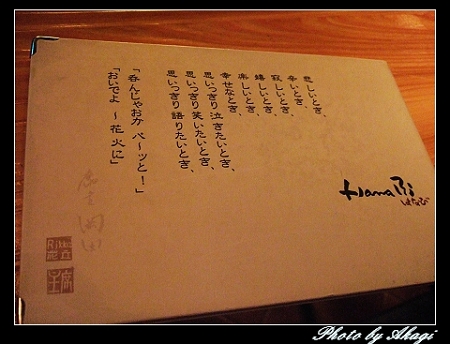 悲しいとき、
辛いとき、
寂しいとき、
嬉しいとき、
楽しいとき、
幸せなとき、
思いっきり泣きたいとき、
思いっきり笑いたいとき、
思いっきり語りたいとき、
「呑んじゃおか パ〜ッと！」
「おいでよ 〜 花火に」
Hana び
はなび
Rikka
Photo by Akagi